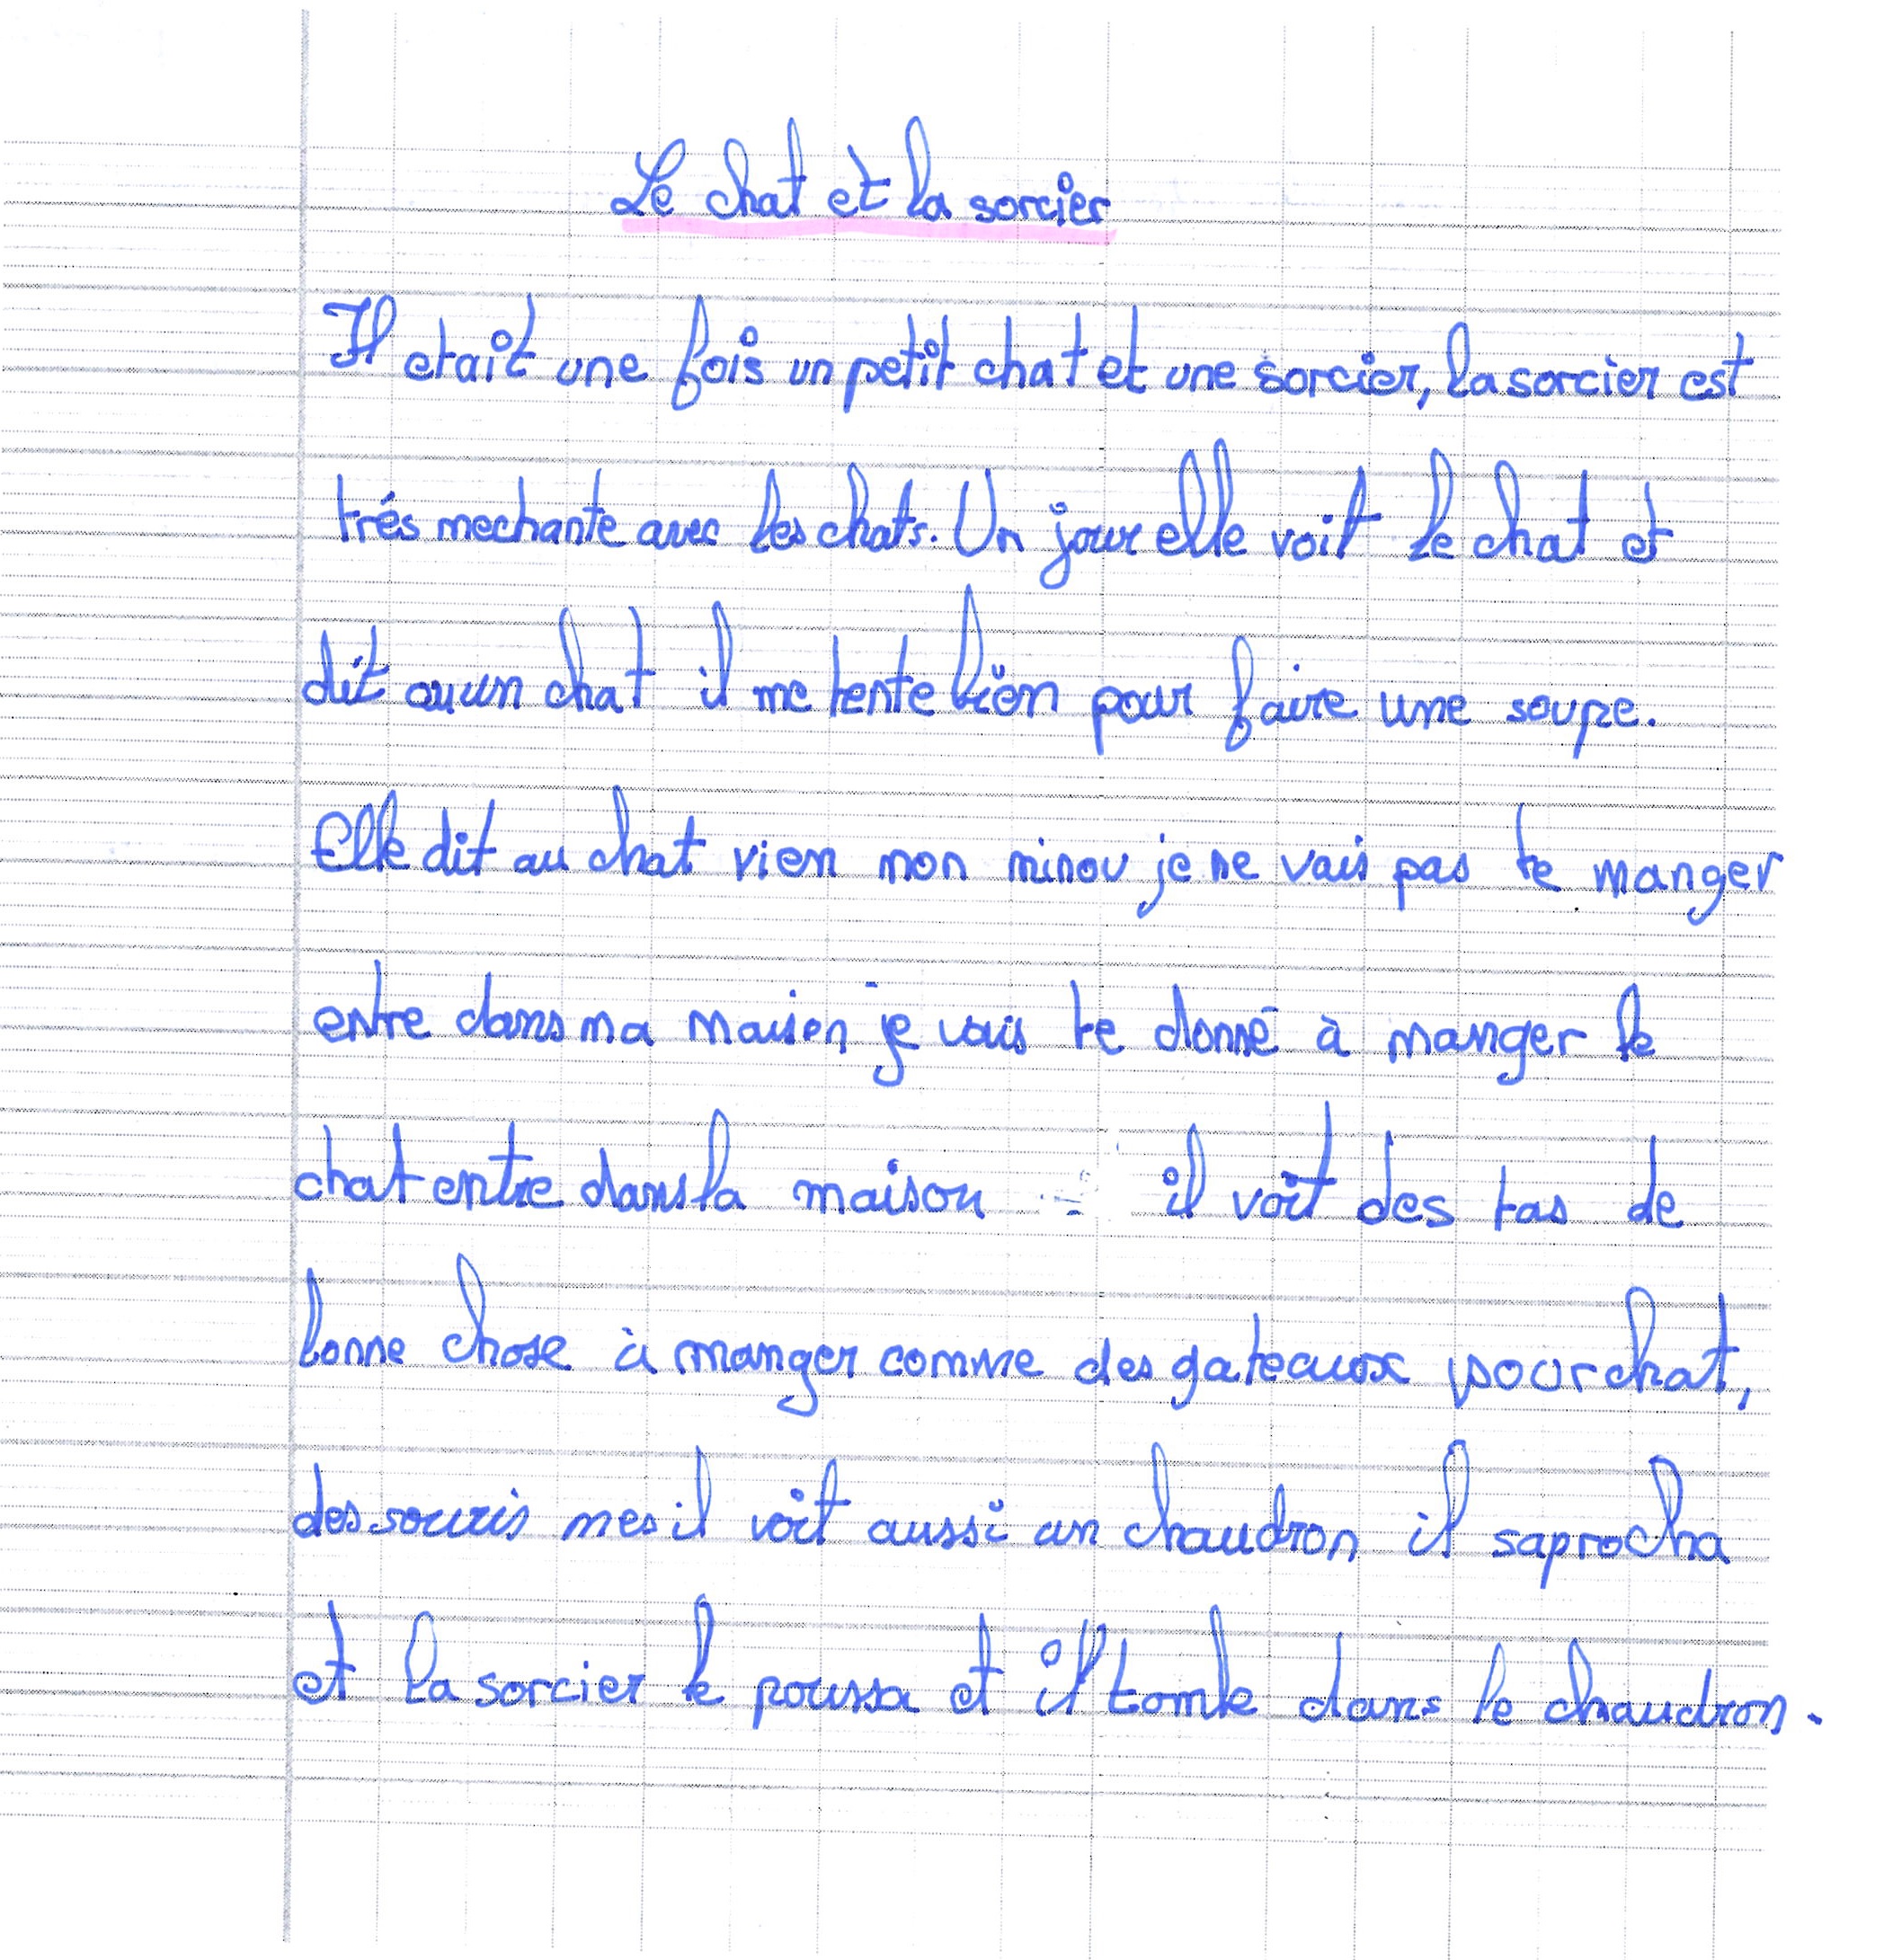 Le chat et la sorcier
Il etait une fois un petit chat et une sorcier, la sorcier est
trés mechante avec les chats. Un jour elle voit le chat et
dit un chat il me tente bien pour faire une soupe.
Elle dit au chat vien mon minou je ne vais pas te manger
entre dans ma maison je vais te donné à manger le
chat entre dans la maison il voit des tas de
bonne chose à manger comme des gateaux pour chat,
des souris mes il voit aussi un chaudron il saprocha
et la sorcier le poussa et il tombe dans le chaudron.